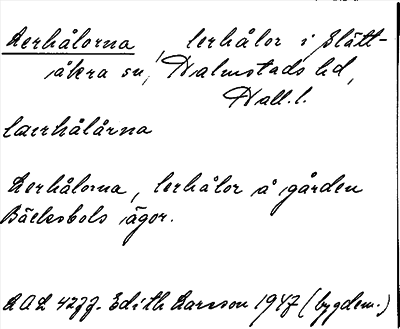 Lerhålorna, lerhålor i Slätt-
åkra sn, Halmstads hd,
Hall. l.
laerhålårna
Lerhålorna, lerhålor å gården
Bäcksbols ägor.
Edith Larsson 1947 (bygdem.)